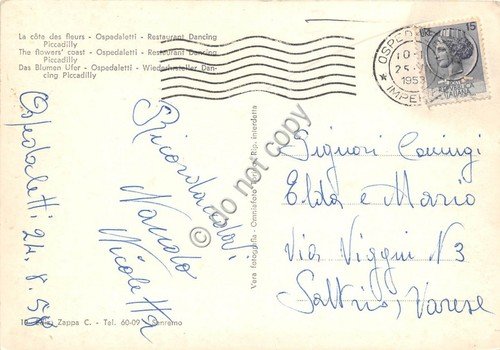 La côte des fleurs - Ospedaletti - Restaurant Dancing
Piccadilly
The flowers' coast - Ospedaletti - Restaurant Dancing
Piccadilly
Das Blumen Ufer - Ospedaletti - Wiederhersteller Dan-
cing Piccadilly
OSPEDA
IMPE
10
25
195
LIRE 15
Ospedaletti 24.8.5
Ricordandovi
Nando
Nicoletta
Vera fotografia - Rip. interdetta
do not copy
Signori
Elda e Mario
Via Viggiù N3
Saltrio, Varese
Zappa C. - Tel. 60-09